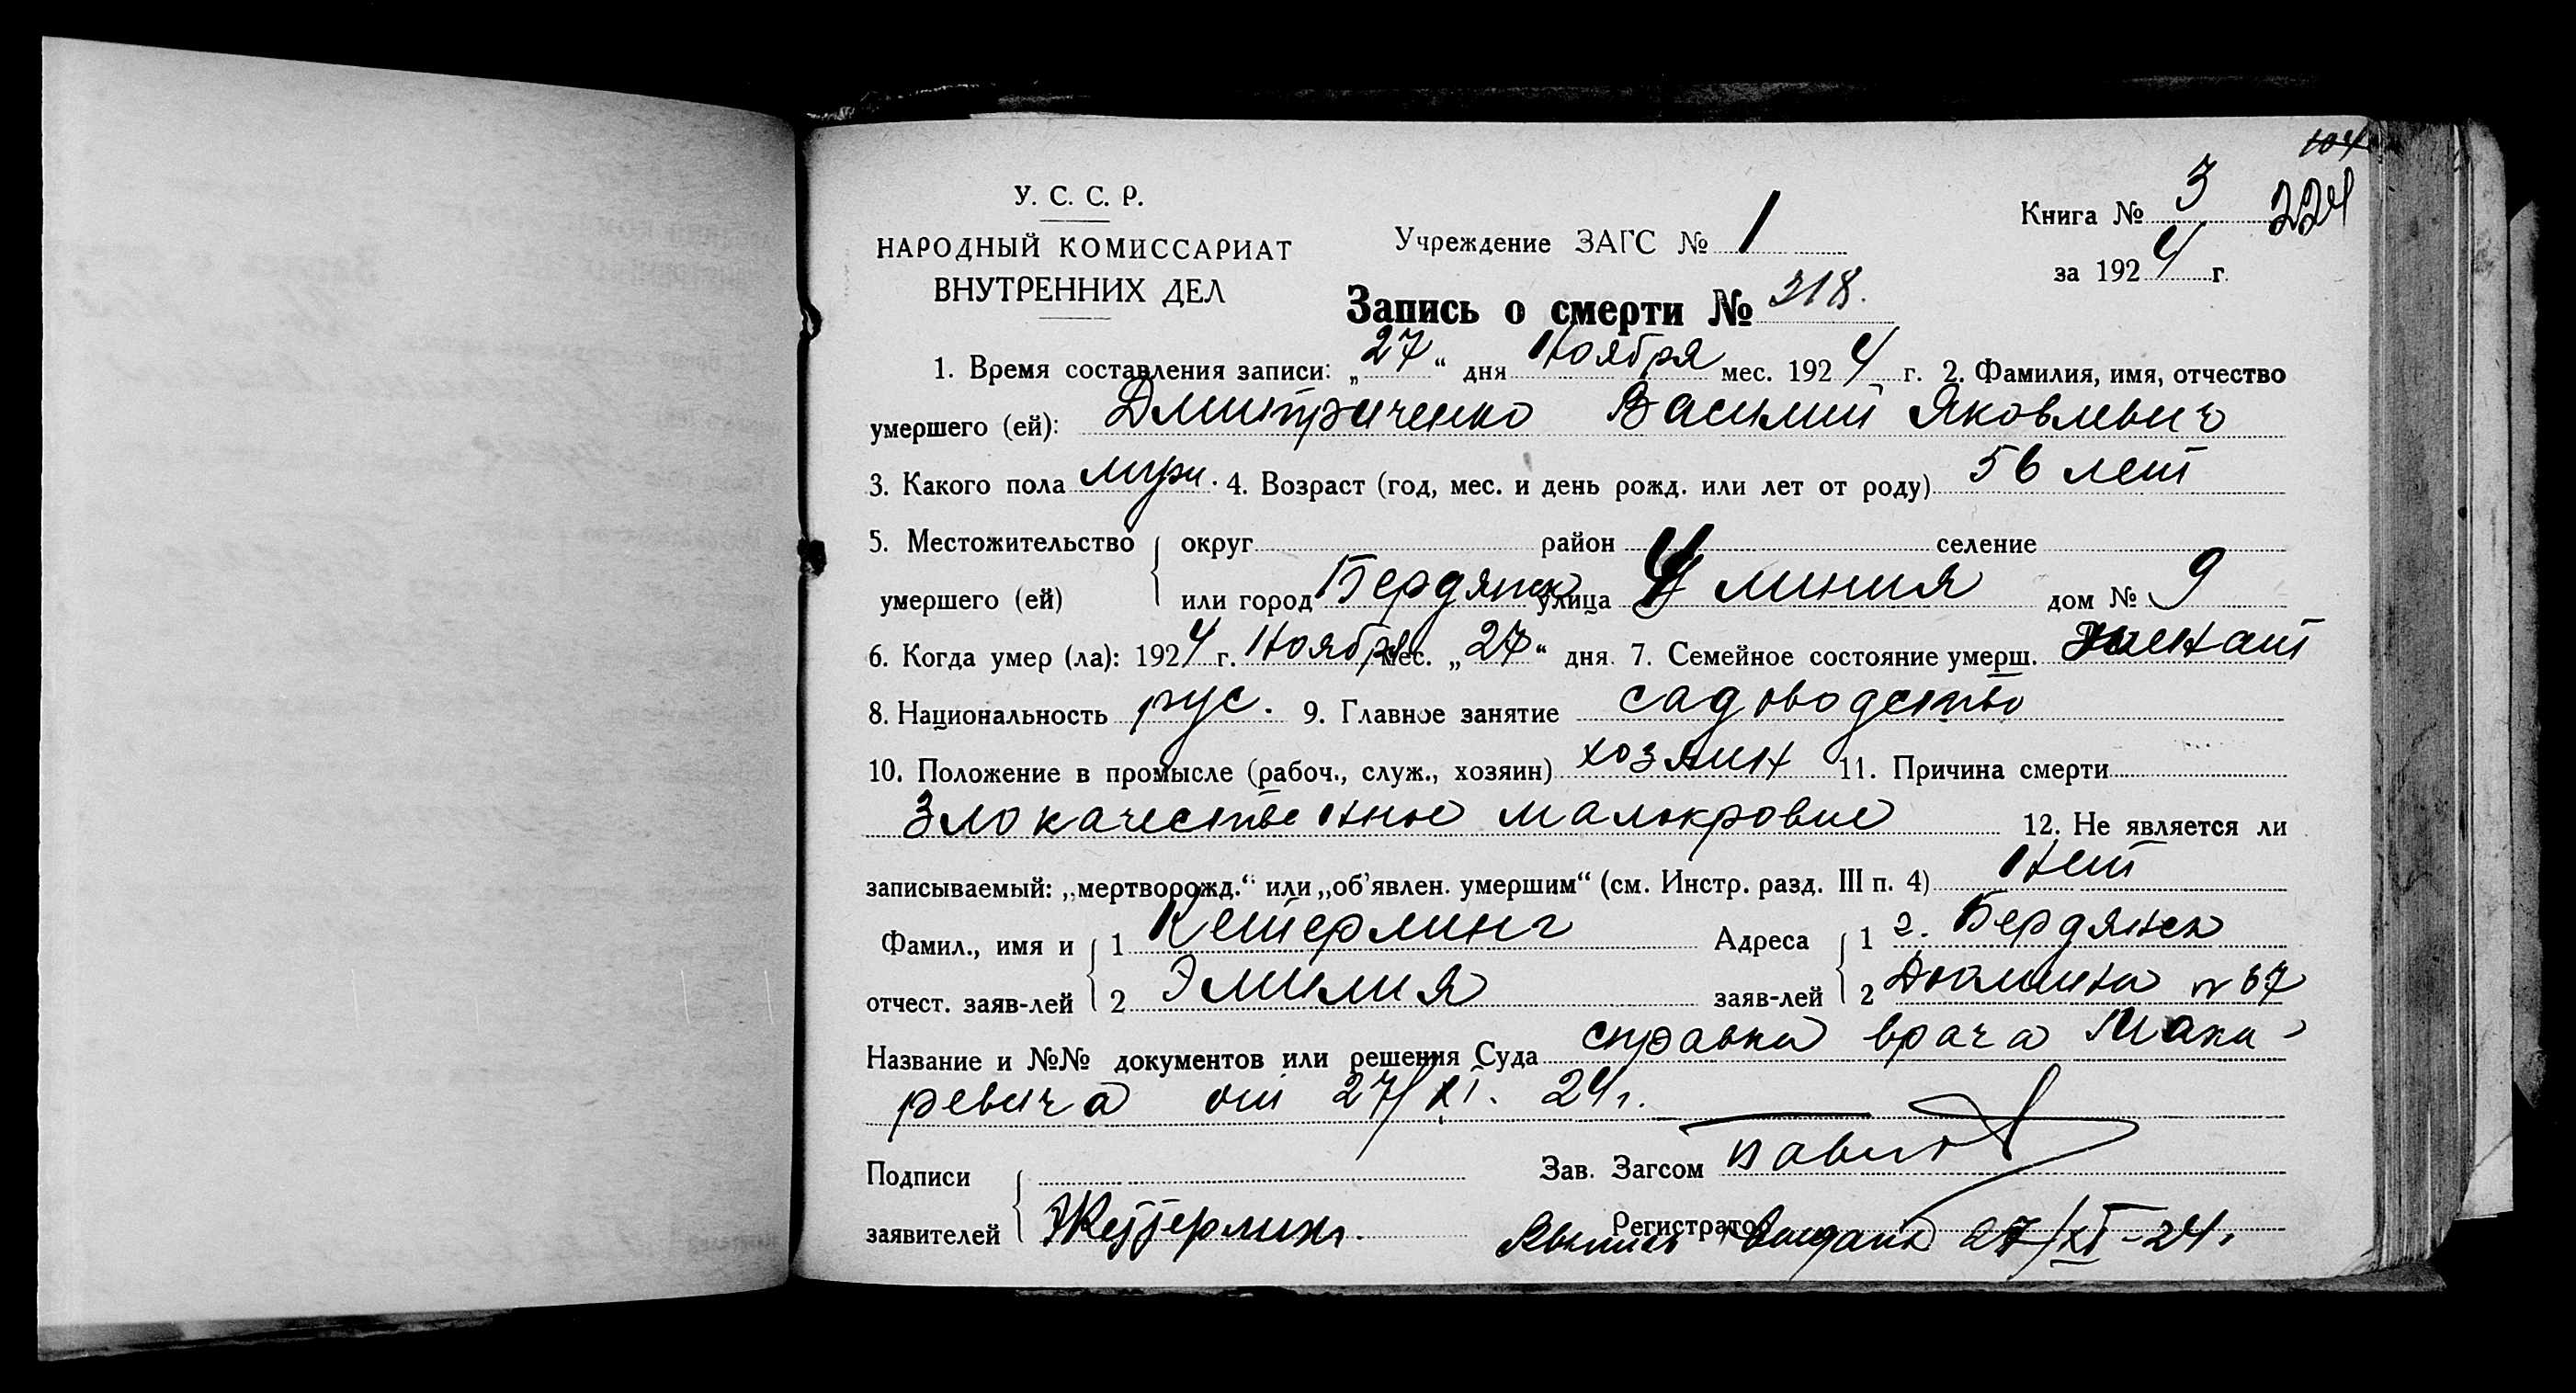 104
У. С. С. Р.
НАРОДНЫЙ КОМИССАРИАТ
ВНУТРЕННИХ ДЕЛ
Учреждение ЗАГС № 1
Книга № 3 224
за 1924 г.
Запись о смерти № 318.
1. Время составления записи: „27“ дня Ноября мес. 1924 г. 2. Фамилия, имя, отчество
умершего (ей): Дмитриченко Василий Яковлевич
3. Какого пола муж. 4. Возраст (год, мес. и день рожд. или лет от роду) 56 лет
5. Местожительство округ район селение
умершего (ей) или город Бердянск улица 4 линия дом № 9
6. Когда умер (ла): 1924 г. Ноября мес. „27“ дня. 7. Семейное состояние умерш. женат
8. Национальность рус. 9. Главное занятие садоводство
10. Положение в промысле (рабоч., служ., хозяин) хозяин 11. Причина смерти
Злокачественное малокровие 12. Не является ли
записываемый: „мертворожд.“ или „об’явлен. умершим“ (см. Инстр. разд. III п. 4) Нет
Фамил., имя и 1 Кетерлинг Адреса 1 г. Бердянск
отчест. заяв-лей 2 Эмилия заяв-лей 2 №67
Название и №№ документов или решения Суда справка врача Мака-
ревича от 27/XI. 24г.
Подписи Зав. Загсом
заявителей Регистратор выдана 27/XI-24г